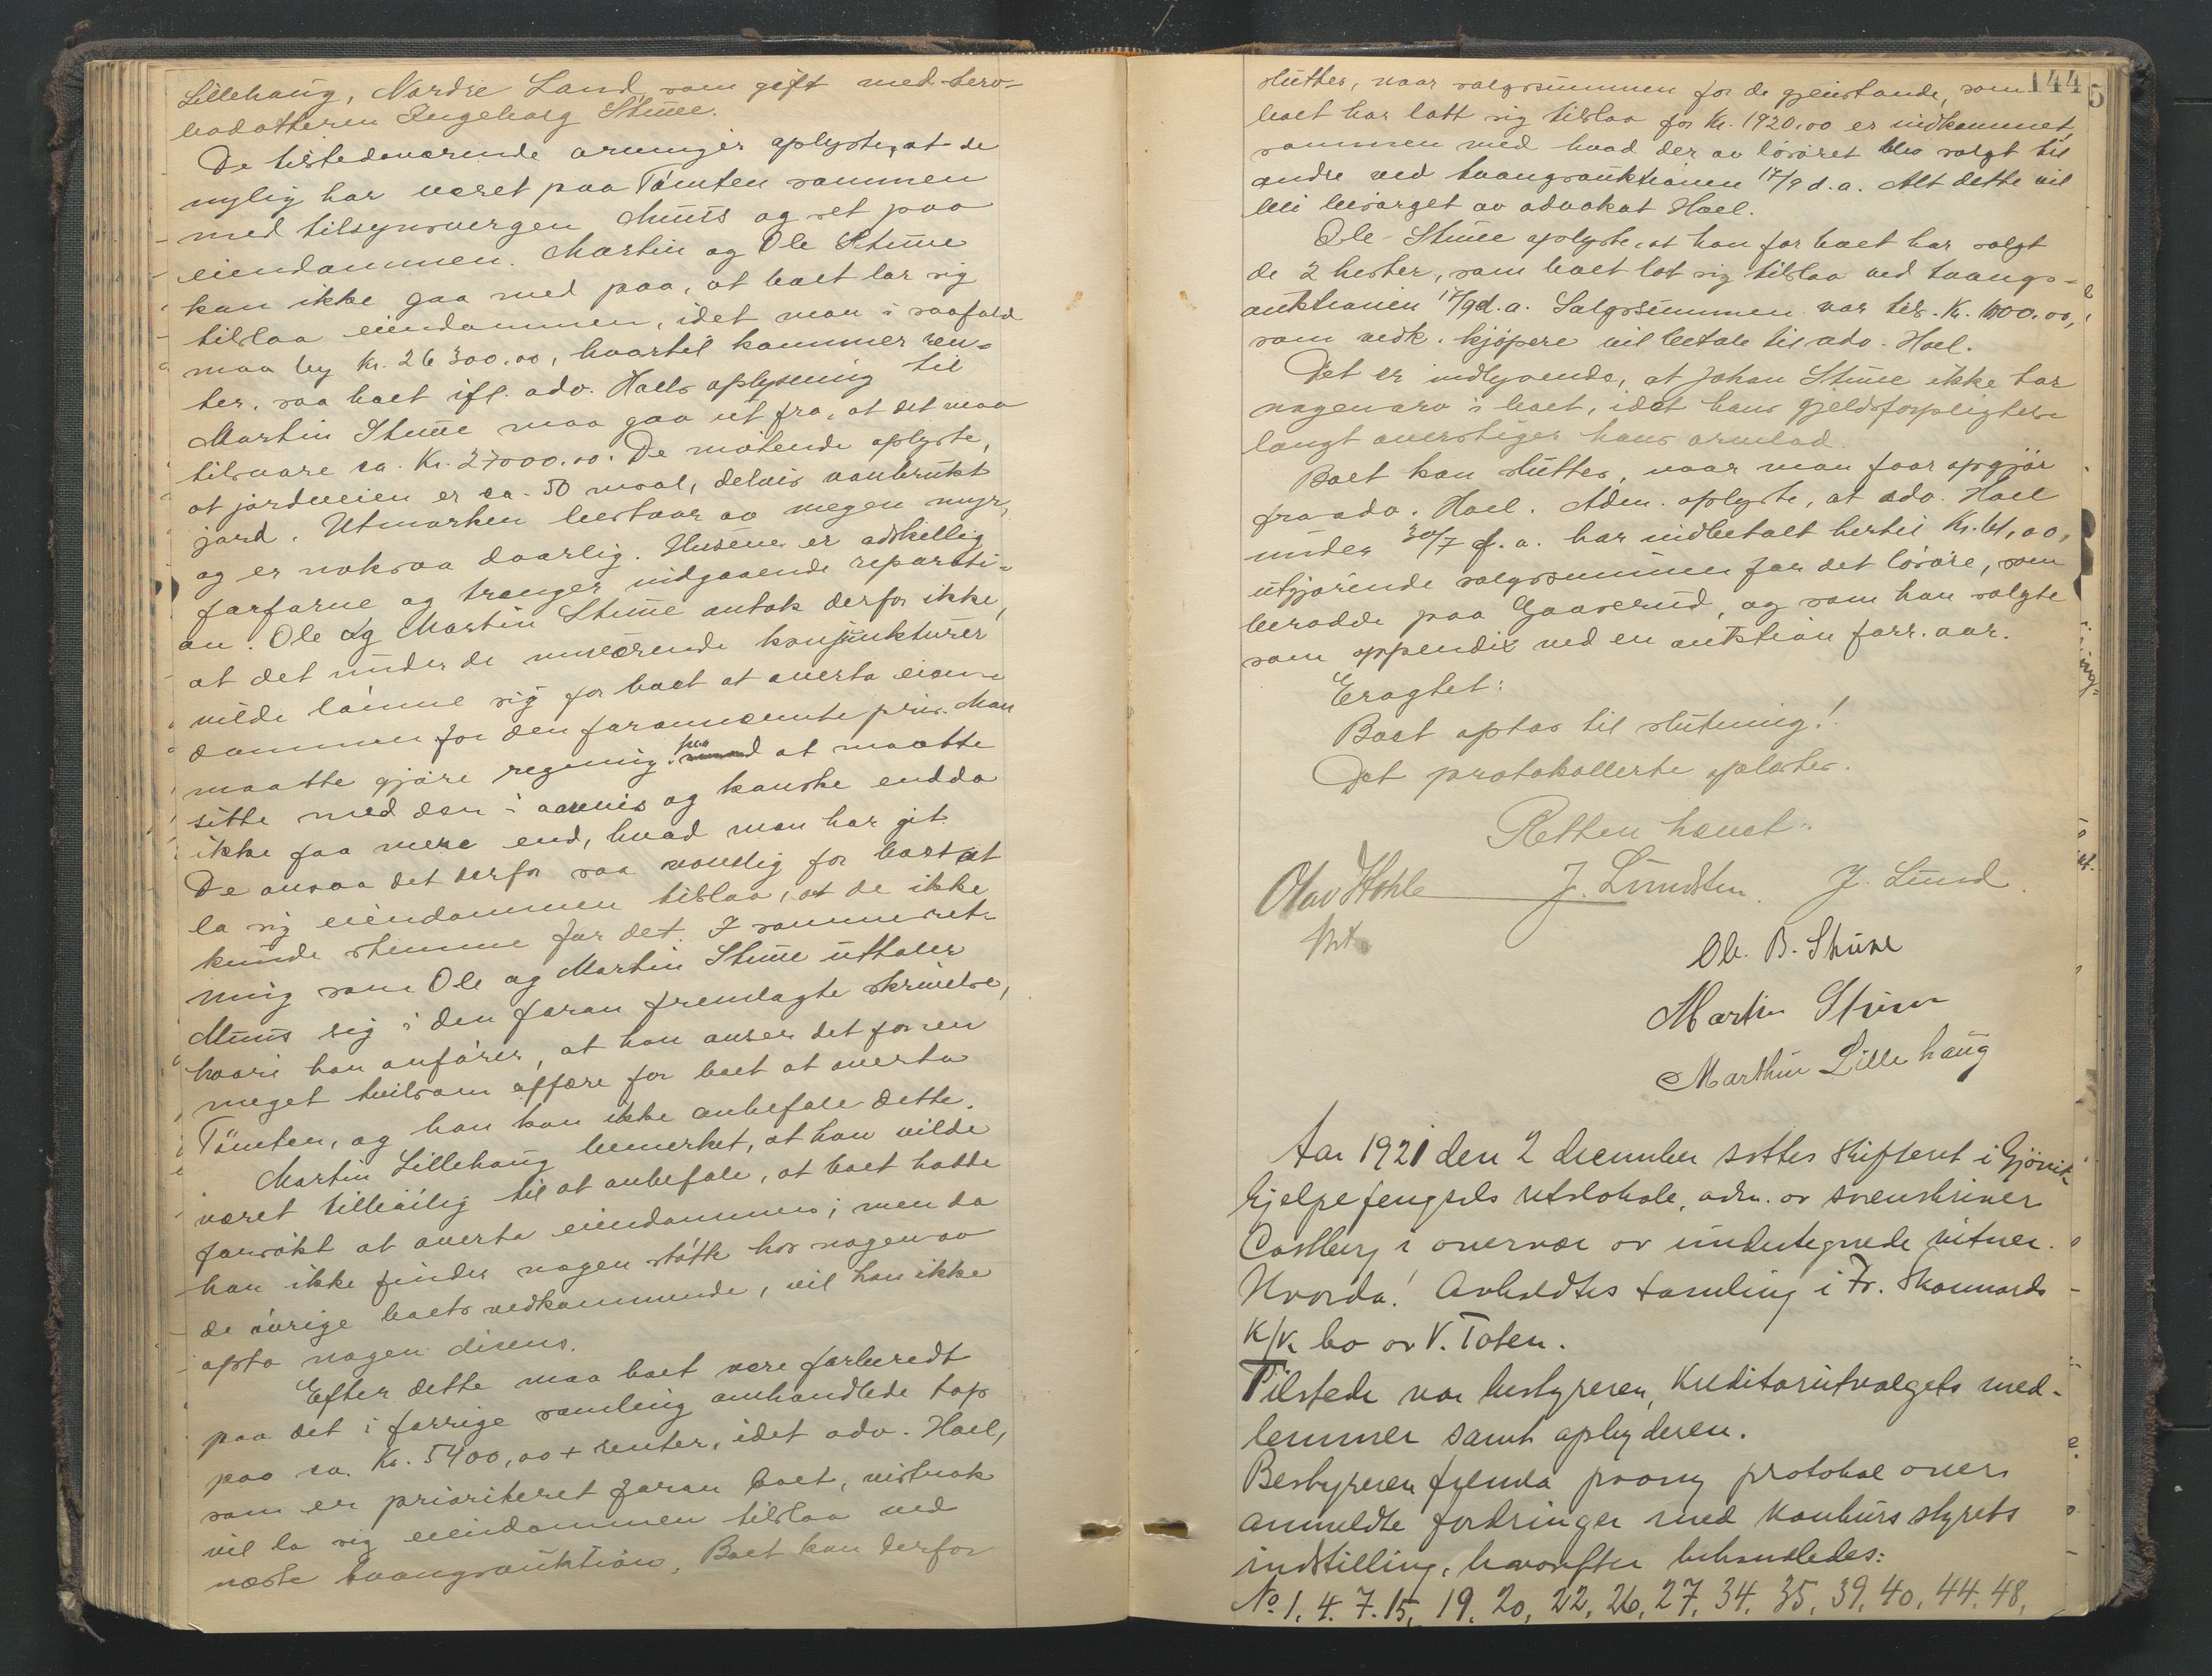 Lillehaug, Nordre Land som gift med terv-
bodatteren Ingeborg Stuve.
De tilstedeværende arvinger oplyste, at de
nylig har været paa Tømten sammen
med tilsynsvergen Muus og set paa
eiendommen. Martin og Ole Stuve
kan ikke gaa med paa, at boet lar sig
tilslaa eiendommen, idet man i saafald
maa by Kr. 26300.00, hvortil kommer ren-
ter, saa boet ifl. adv. Hoels oplysning til
Martin Stuve maa gaa ut fra, at det maa
tilsvare ca. Kr. 27000.00. De møtende oplyste,
at jordveien er ca. 50 maal, delvis vanbrukt
jord. Utmarken bestaar av megen myr,
og er noksaa daarlig. Husene er adskillig
forfarne og trenger indgaaende reparati-
on. Ole og Martin Stuve antok derfor ikke,
at det under de nuværende konjunkturer
vilde lønne sig for boet at overta eien-
dommen for den forannævnte pris. Man
maatte gjøre regning paa at maatte
sitte med den i aarevis og kanske endda
ikke faa mere end, hvad man har git.
De ansaa det derfor saa vanslig for boet at
la sig eiendommen tilslaa, at de ikke
kunde stemme for det. I samme ret-
ning som Ole og Martin Stuve uttaler
Muus sig i den foran fremlagte skrivelse,
hvori han anfører, at han anser det for en
meget tvilsom affære for boet at overta
Tømten, og han kan ikke anbefale dette.
Martin Lillehaug bemerket, at han vilde
været tilbøielig til at anbefale, at boet hadde
forsøkt at overta eiendommen; men da
han ikke finder nogen støtte hos nogen av
de øvrige boets vedkommende, vil han ikke
opta nogen disens.
Efter dette maa boet være forberedt
paa det i forrige samling omhandlede tap
paa ca. Kr. 5400,00 + renter, idet adv. Hoel,
som er prioriteret foran boet, vistnok
vil la sig eiendommen tilslaa ved
næste tvangsauktion. Boet kan derfor
144
5
sluttes, naar salgssummen for de gjenstande, som
boet har latt sig tilslaa for Kr. 1920.00 er indkommet,
sammen med hvad der av løsøret blev solgt til
andre ved tvangsauktionen 17/9 d.a. Alt dette vil
bli besørget av advokat Hoel.
Ole Stuve oplyste, at han for boet har solgt
de 2 hester, som boet lot sig tilslaa ved tvangs-
auktionen 17/9 d.a. Salgssummen var tils. Kr. 1000.00,
som vedk. kjøpere vil betale til adv. Hoel.
Det er indlysende, at Johan Stuve ikke har
nogen arv i boet, idet hans gjeldsforpligtelse
langt overstiger hans arvelod.
Boet kan sluttes, naar man faar opgjør
fra adv. Hoel. Adm. oplyste, at adv. Hoel
under 30/7 d.a. har indbetalt hertil Kr. 61,00,
utgjørende salgssummen for det løsøre, som
beradde paa Gaaserud, og som han solgte
som appendix ved en auktion forr. aar.
Eragtet:
Boet optas til slutning!
Det protokollerte oplæstes.
Retten hævet.
Olav Kohle J. Lundsten. J. Lund.
Ole B. Stuve
Martin Stuve
Marthin Lillehaug
Aar 1921 den 2 december sattes skifteret i Gjøvik
hjelpefengsels retslokale, adm. av sorenskriver
Castberg i overvær av undertegnede vitner.
Hvorda! Avholdtes samling i Fr. Skonnords
K/k bo av V. Toten.
Tilstede var bestyreren, kreditorutvalgets med-
lemmer samt opbyderen.
Bestyreren fremla paany protokol over
anmeldte fordringer med konkursstyrets
indstilling, hvorefter behandledes:
No. 1. 4. 7. 15, 19. 20, 22, 26, 27, 34, 35, 39, 40, 44, 48,